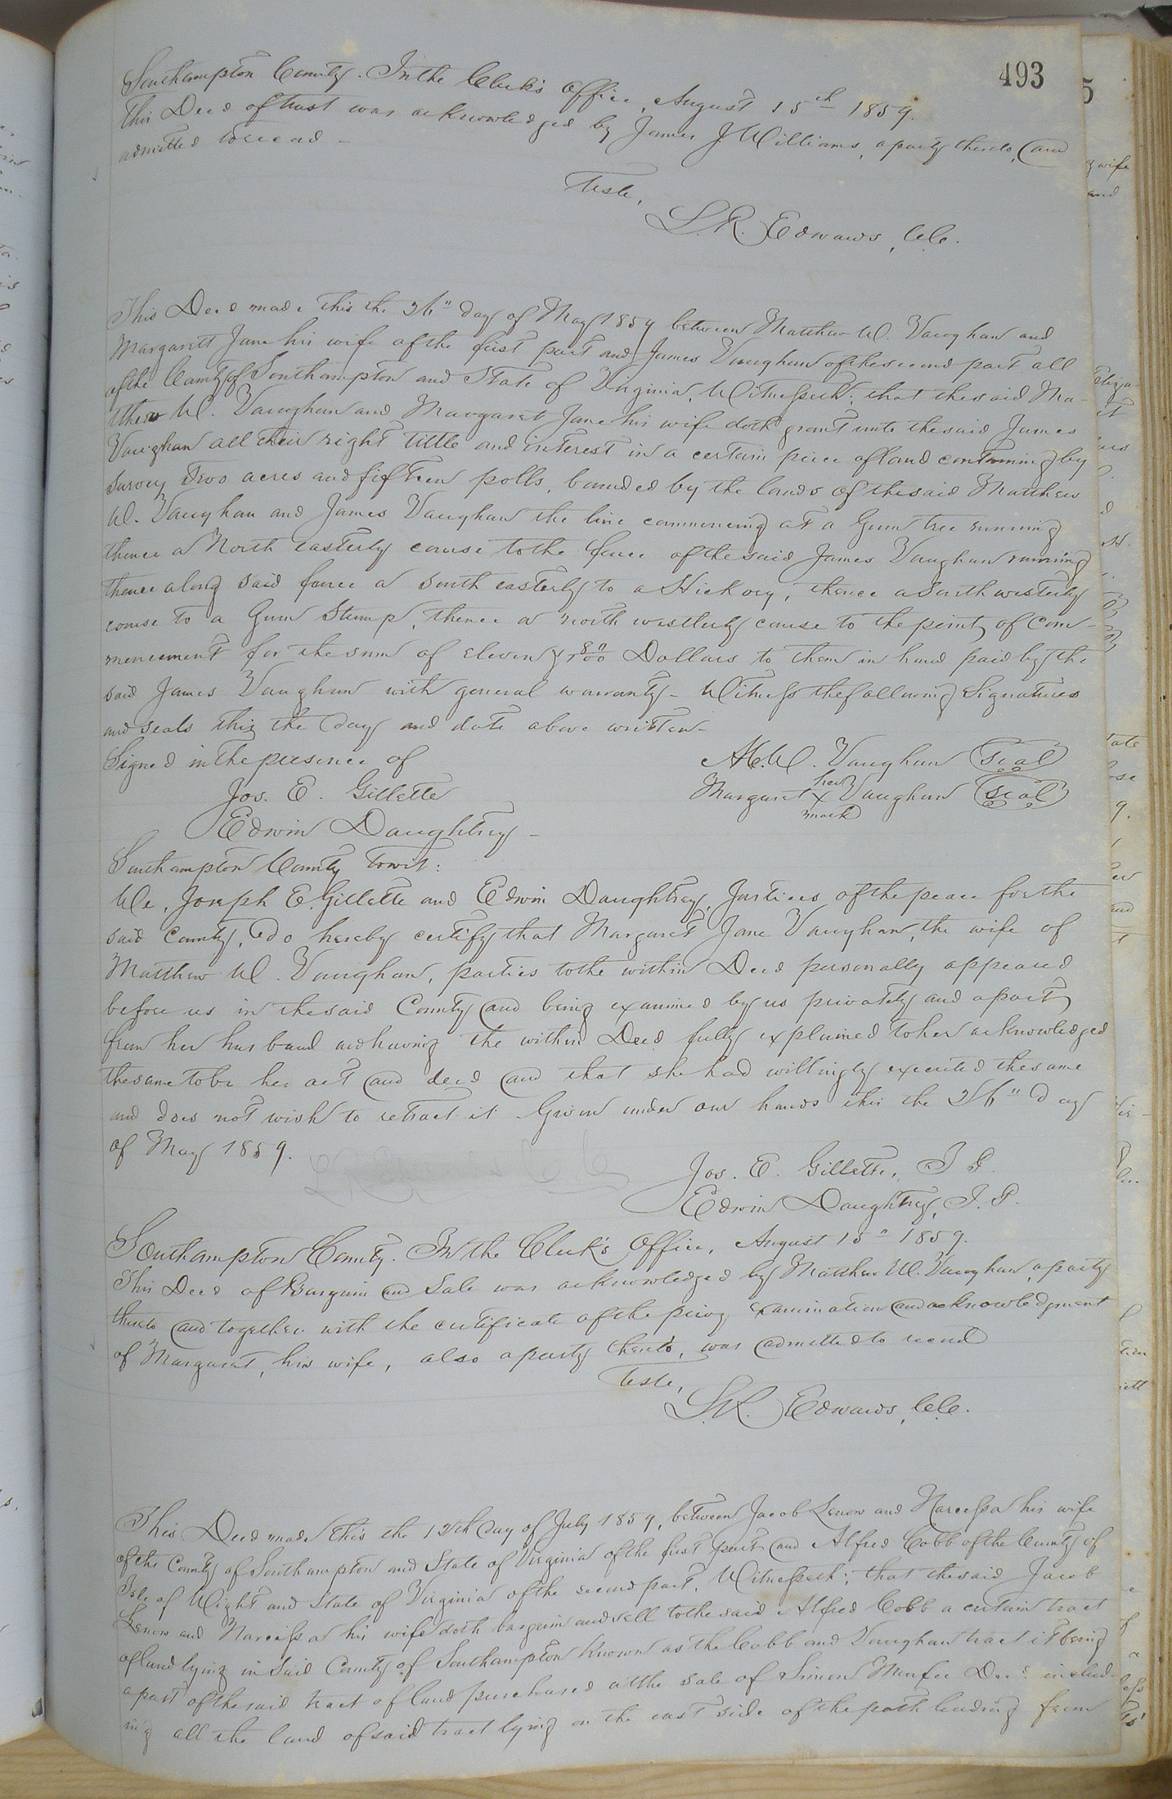 493
Southampton County. In the Clerk's Office, August 15th 1859.
This Deed of trust was acknowledged by James J Williams, a party thereto, and
admitted to record –
Teste,
L. R. Edwards, C.C.
This Deed made this the 26" day of May 1859 between Matthew W. Vaughan and
Margarett Jane his wife of the first part and James Vaughan of the second part all
of the County of Southampton and State of Virginia, Witnesseth; that the said Ma-
tthew W. Vaughan and Margaret Jane his wife doth grant unto the said James
Vaughan all their right tittle and interest in a certain piece of land containing by
survey two acres and fifteen polls, bounded by the lands of the said Matthew
W. Vaughan and James Vaughan the line commencing at a Gum tree running
thence a North easterly course to the fence of the said James Vaughan running
thence along said fence a south easterly to a Hickory, thence a South westerly
course to a Gum Stump, thence a north westterly course to the point of Com-
mencement for the sum of eleven Dollars to them in hand paid by the
said James Vaughan with general warranty – Witness the following Signatures
and seals this the day and date above written –
Signed in the presence of M. W. Vaughan (Seal)
Jos. E. Gillette Margaret her X mark Vaughan (Seal)
Edwin Daughtrey –
Southampton County towit:
We, Joseph E. Gillette and Edwin Daughtrey, Justices of the peace for the
said County, do hereby certify that Margaret Jane Vaughan, the wife of
Matthew W. Vaughan, parties to the within Deed personally appeared
before us in the said County and being examined by us privately and apart
from her husband and having the within Deed fully explained to her acknowledged
the same to be her act and deed and that she had willingly executed the same
and does not wish to retract it. Given under our hands this the 26" day
of May 1859.
Jos. E. Gillette, J P.
Edwin Daughtrey, J. P.
Southampton County. In the Clerk's Office, August 15" 1859.
This Deed of Bargain and Sale was acknowledged by Matthew W. Vaughan, a party
thereto and together with the certificate of the privy examination and acknowledgment
of Margaret, his wife, also a party thereto, was admitted to record
Teste,
L. R. Edwards, C.C.
This Deed made this the 12th day of July 1859, between Jacob Lenow and Narcissa his wife
of the County of Southampton and State of Virginia of the first part and Alfred Cobb of the County of
Isle of Wight and State of Virginia of the second part, Witnesseth; that the said Jacob
Lenow and Narcissa his wife doth bargain and sell to the said Alfred Cobb a certain tract
of land lying in Said County of Southampton Known as the Cobb and Vaughan tract it being
a part of the said tract of land purchased at the sale of Simon Murfee Decd. includ-
ing all the land of said tract lying on the east side of the path leading from